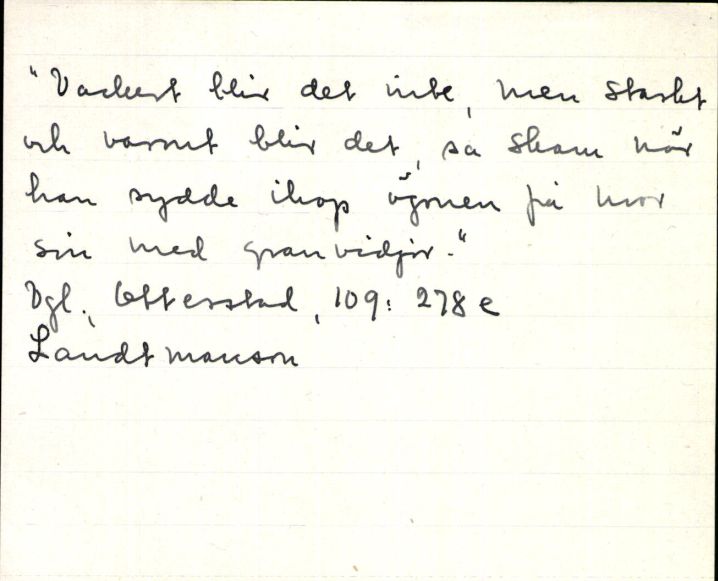 "Vackert blir det inte, men starkt
och varmt blir det, sa Skam när
han sydde ihop ögonen på mor
sin med granvidjor."
Vgl., Otterstad, 109: 278 e
Landtmanson